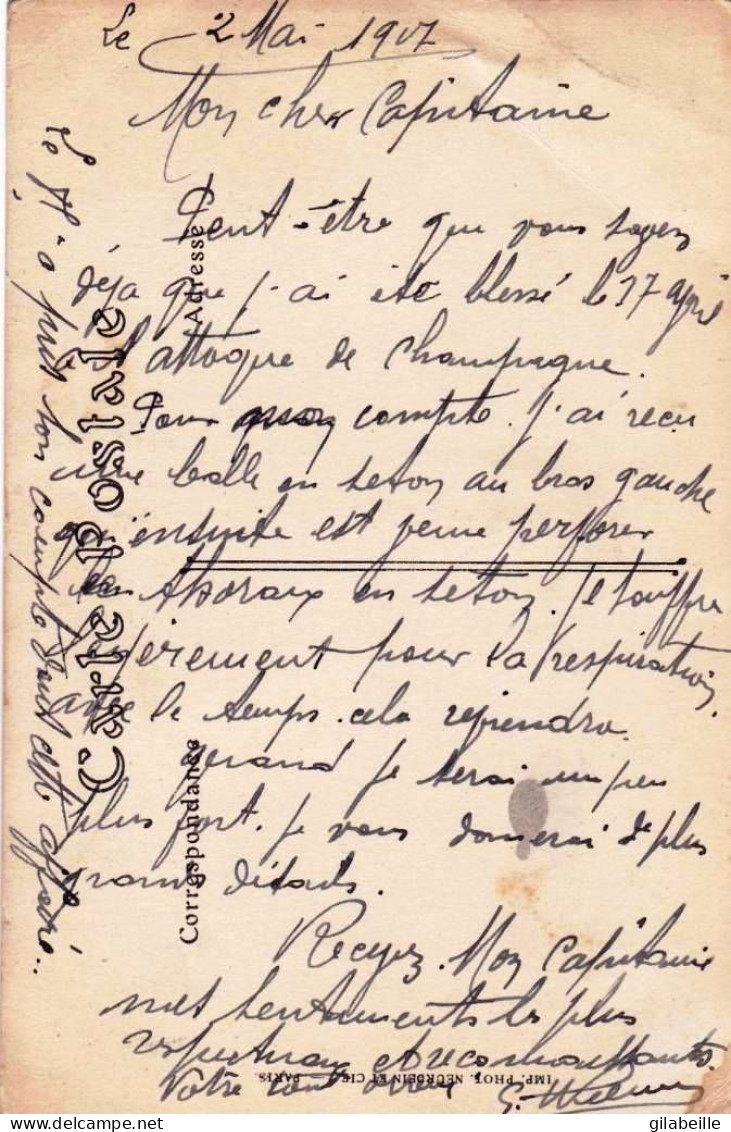 Le 2 Mai 1917
Mon cher Capitaine
Peut-être que vous soyez
déjà que j'ai été blessé le 17 april
l'attaque de Champagne.
Pour mon compte. j'ai reçu
une balle en seton au bras gauche
ensuite est venue perforer
thoraux en seton. Je souffre
légèrement pour la respiration,
avec le temps cela reprendra
quand je serai un peu
plus fort. je vous donnerai de plus
grand détails.
Recevez. Mon Capitaine
mes sentiments les plus
respectueux et reconnaissants.
Votre tout
Le a pris son compte dans cette affaire..
Carte Postale
Correspondance
Adresse
IMP. PHOT. NEURDEIN ET CIE. PARIS.
© gilabeille